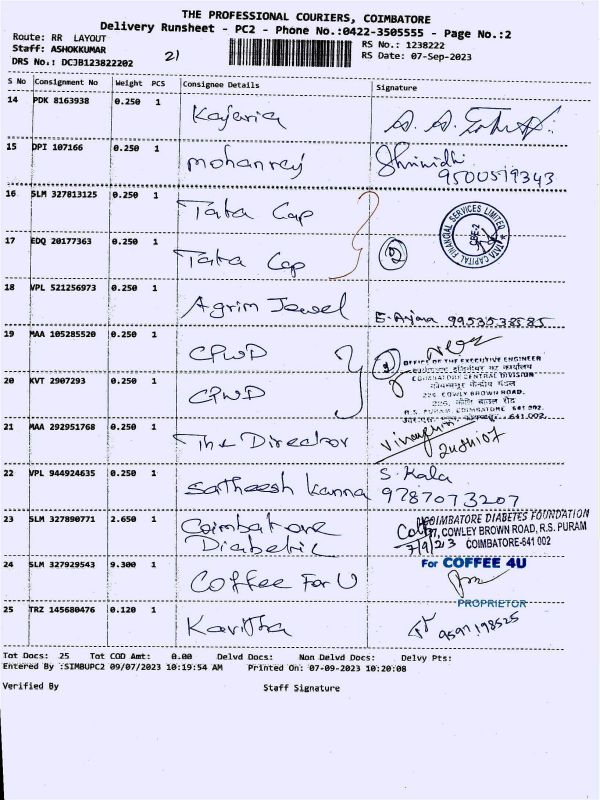 THE PROFESSIONAL COURIERS, COIMBATORE
Delivery Runsheet - PC2 - Phone No.:0422-3505555 - Page No.:2
Route: RR LAYOUT
Staff: ASHOKKUMAR
DRS No.: DCJB123822202
21
RS No.: 1238222
RS Date: 07-Sep-2023
S No Consignment No Weight PCS Consignee Details Signature
14 PDK 8163938 0.250 1 Kajaria
15 DPI 107166 0.250 1 mohanraj Shrinidhi
9500579343
16 SLM 327813125 0.250 1 Tata Cap
TATA CAPITAL FINANCIAL SERVICES LIMITED
CBE-2
17 EDQ 20177363 0.250 1 Tata Cap 2
18 VPL 521256973 0.250 1 Agrim Jewel
19 MAA 105285520 0.250 1 CPWD
OFFICE OF THE EXECUTIVE ENGINEER
COIMBATORE CENTRAL DIVISION
20 KVT 2907293 0.250 1 CPWD
COWLY BROWN ROAD,
R.S. PURAM, COIMBATORE 641 002.
21 MAA 292951768 0.250 1 The Director
22 VPL 944924635 0.250 1 Satheesh Kanna S. Kala
9787073207
23 SLM 327890771 2.650 1 Coimbatore
Diabetic
COIMBATORE DIABETES FOUNDATION
COWLEY BROWN ROAD, R.S. PURAM
7/9/23 COIMBATORE-641 002
24 SLM 327929543 9.300 1 Coffee For U
For COFFEE 4U
PROPRIETOR
25 TRZ 145680476 0.120 1 Kavitha 9597198525
Tot Docs: 25 Tot COD Amt: 0.00 Delvd Docs: Non Delvd Docs: Delvy Pts:
Entered By :SIMBUPC2 09/07/2023 10:19:54 AM Printed On: 07-09-2023 10:20:08
Verified By Staff Signature